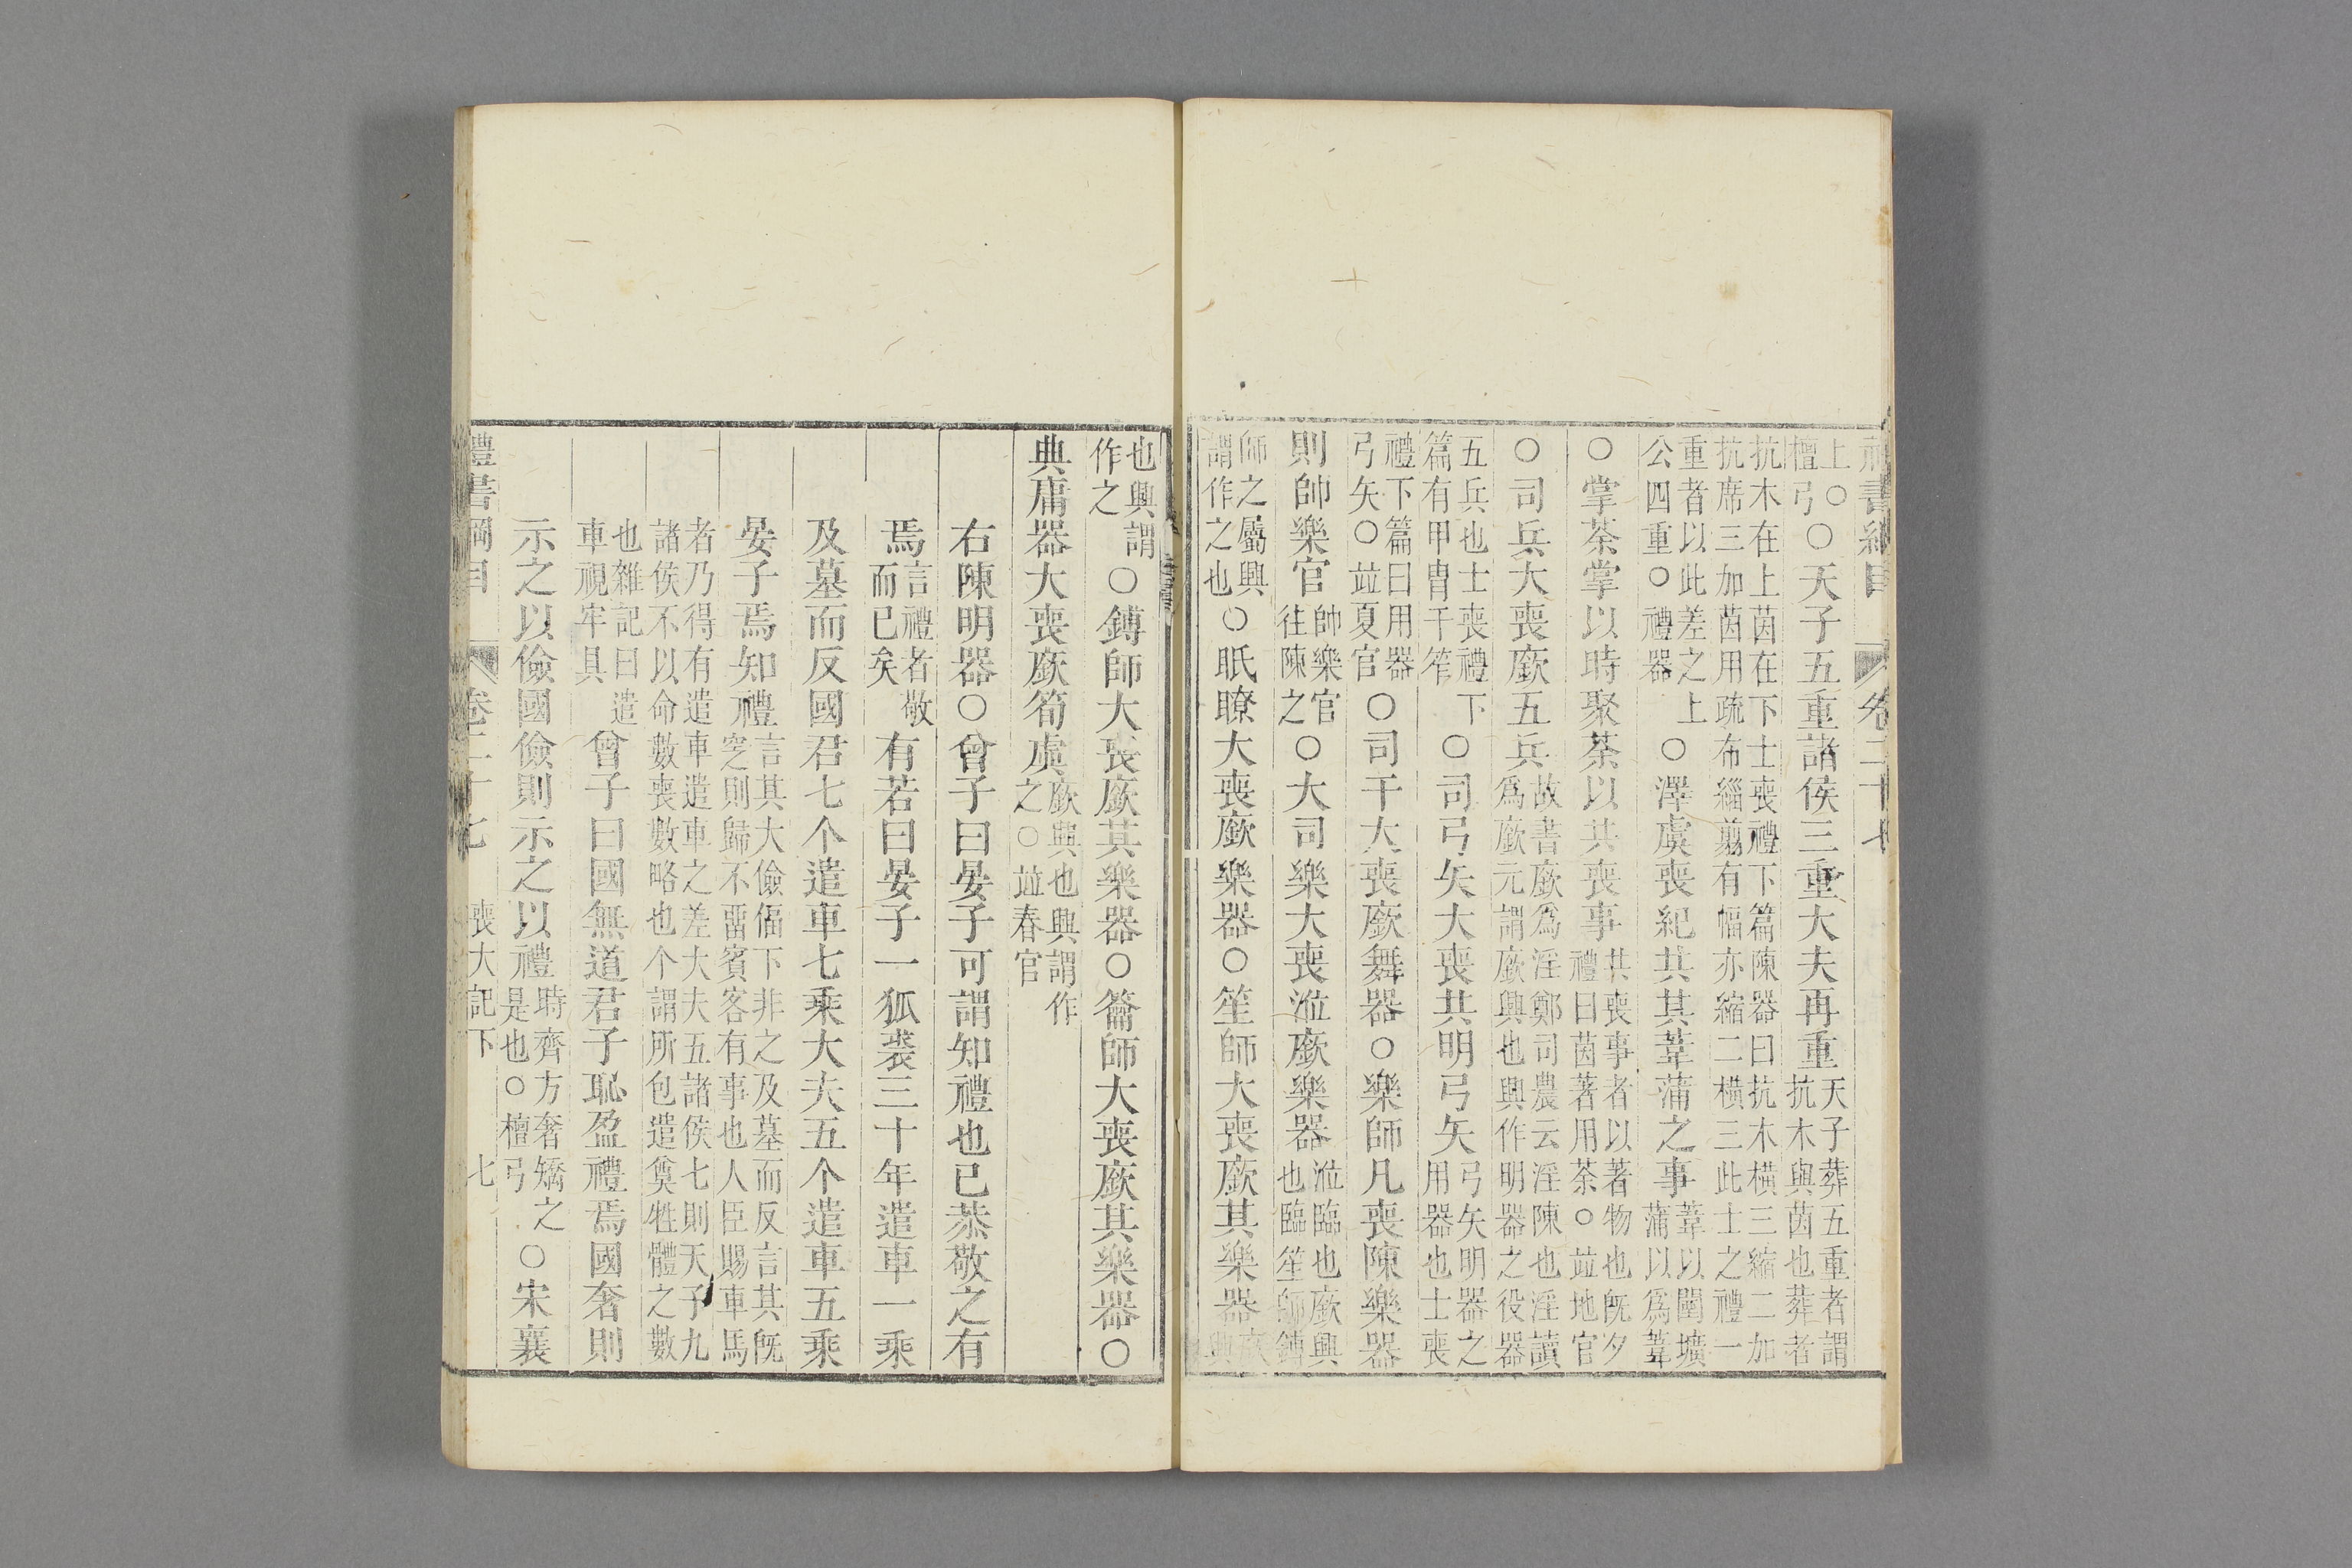 禮書綱目 卷二十七
上○
檀弓
○天子五重諸侯三重大夫再重
天子葬五重者謂
抗木與茵也葬者
抗木在上茵在下士喪禮下篇陳器曰抗木橫三縮二加
抗席三加茵用疏布緇翦有幅亦縮二橫三此士之禮一
重者以此差之上
公四重○禮器
○澤虞喪紀共其葦蒲之事
葦以闉壙
蒲以爲葦
○掌荼掌以時聚荼以共喪事
共喪事者以著物也旣夕
禮曰茵著用荼○竝地官
○司兵大喪廞五兵
故書廞爲淫鄭司農云淫陳也淫讀
爲廞元謂廞興也興作明器之役器
五兵也士喪禮下
篇有甲冑干笮
○司弓矢大喪共明弓矢
弓矢明器之
用器也士喪
禮下篇曰用器
弓矢○竝夏官
○司干大喪廞舞器○樂師凡喪陳樂器
則帥樂官
帥樂官
往陳之
○大司樂大喪涖廞樂器
涖臨也廞興
也臨笙師鎛
師之屬興
謂作之也
○眡瞭大喪廞樂器○笙師大喪廞其樂器
廞
興
也興謂
作之
○鎛師大喪廞其樂器○籥師大喪廞其樂器○
典庸器大喪廞筍虡
廞興也興謂作
之○竝春官
右陳明器○曾子曰晏子可謂知禮也已恭敬之有
焉
言禮者敬
而已矣
有若曰晏子一狐裘三十年遣車一乘
及墓而反國君七个遣車七乘大夫五个遣車五乘
晏子焉知禮
言其大儉偪下非之及墓而反言其旣
窆則歸不畱賓客有事也人臣賜車馬
者乃得有遣車遣車之差大夫五諸侯七則天子九
諸侯不以命數喪數略也个謂所包遣奠牲體之數
也雜記曰遣
車視牢具
曾子曰國無道君子恥盈禮焉國奢則
示之以儉國儉則示之以禮
時齊方奢矯之
是也○檀弓
○宋襄
禮書綱目 卷二十七 喪大記下 七